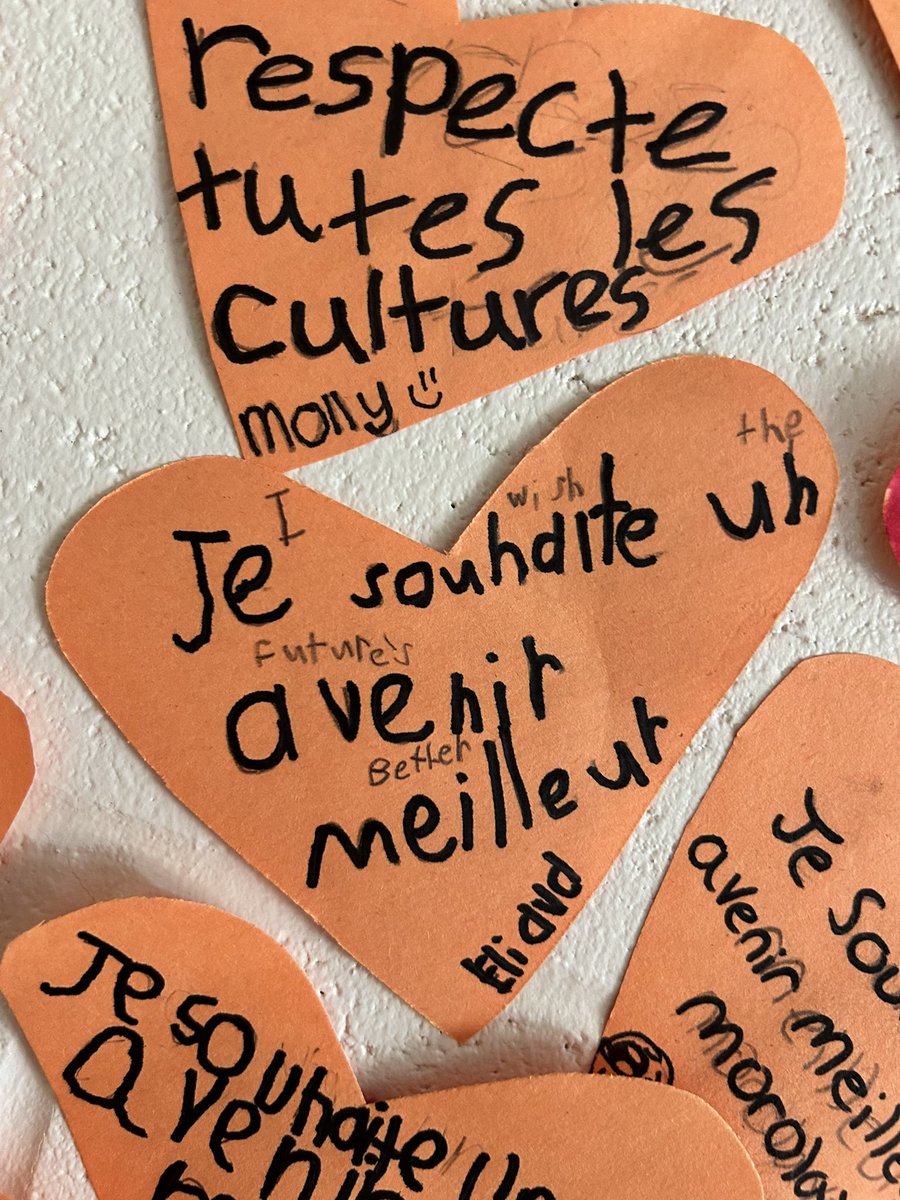 respecte
tutes les
cultures
molly
I wish the
Je souhaite un
Future's
avenir
Better
meilleur
Eliavd
Je sou
avenir meille
Je souhaite un
avenir